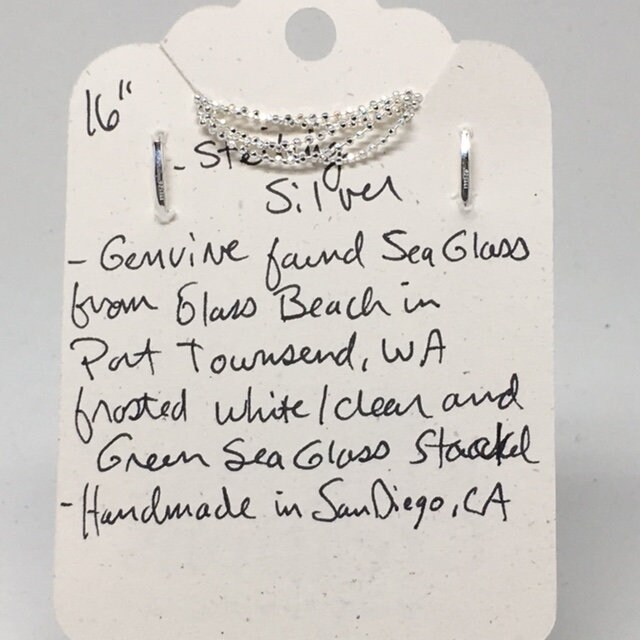 16"
- Sterling
Silver
- Genuine found Sea Glass
from Glass Beach in
Port Townsend, WA
frosted white/clear and
Green Sea Glass Stacked
- Handmade in San Diego, CA